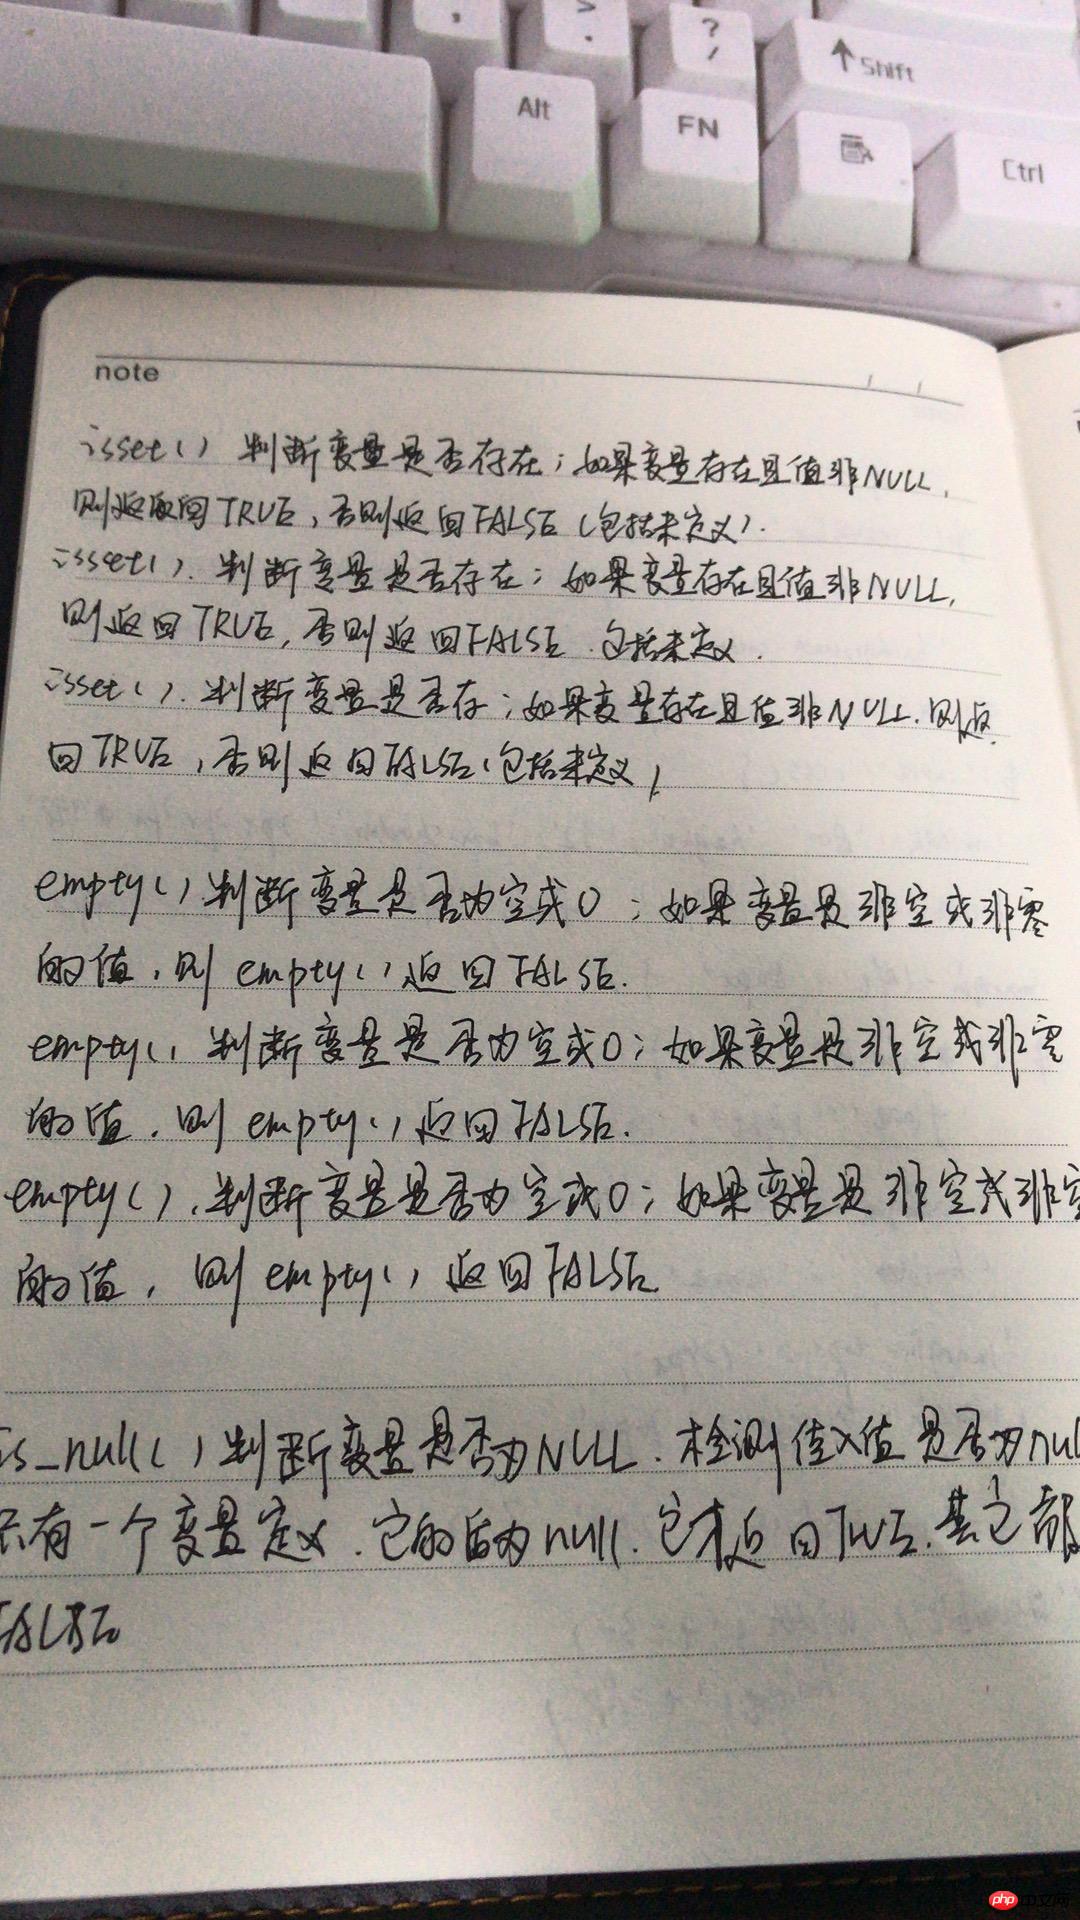 , > . ? /
↑ Shift
Alt FN Ctrl
note
isset() 判断变量是否存在;如果变量存在且值非NULL,
则返回TRUE,否则返回FALSE(包括未定义).
isset(). 判断变量是否存在;如果变量存在且值非NULL,
则返回TRUE,否则返回FALSE.包括未定义.
isset(). 判断变量是否存;如果变量存在且值非NULL.则返
回TRUE,否则返回FALSE(包括未定义)
empty() 判断变量是否为空或0;如果变量是非空或非零
的值,则empty()返回FALSE.
empty() 判断变量是否为空或0;如果变量是非空或非零
的值.则empty()返回FALSE.
empty().判断变量是否为空或0;如果变量是非空或非空
的值,则empty()返回FALSE
is_null()判断变量是否为NULL.检测值是否为nul
只有一个变量定义.它的为null.它才返回TRUE.其它都
FALSE
php中文网